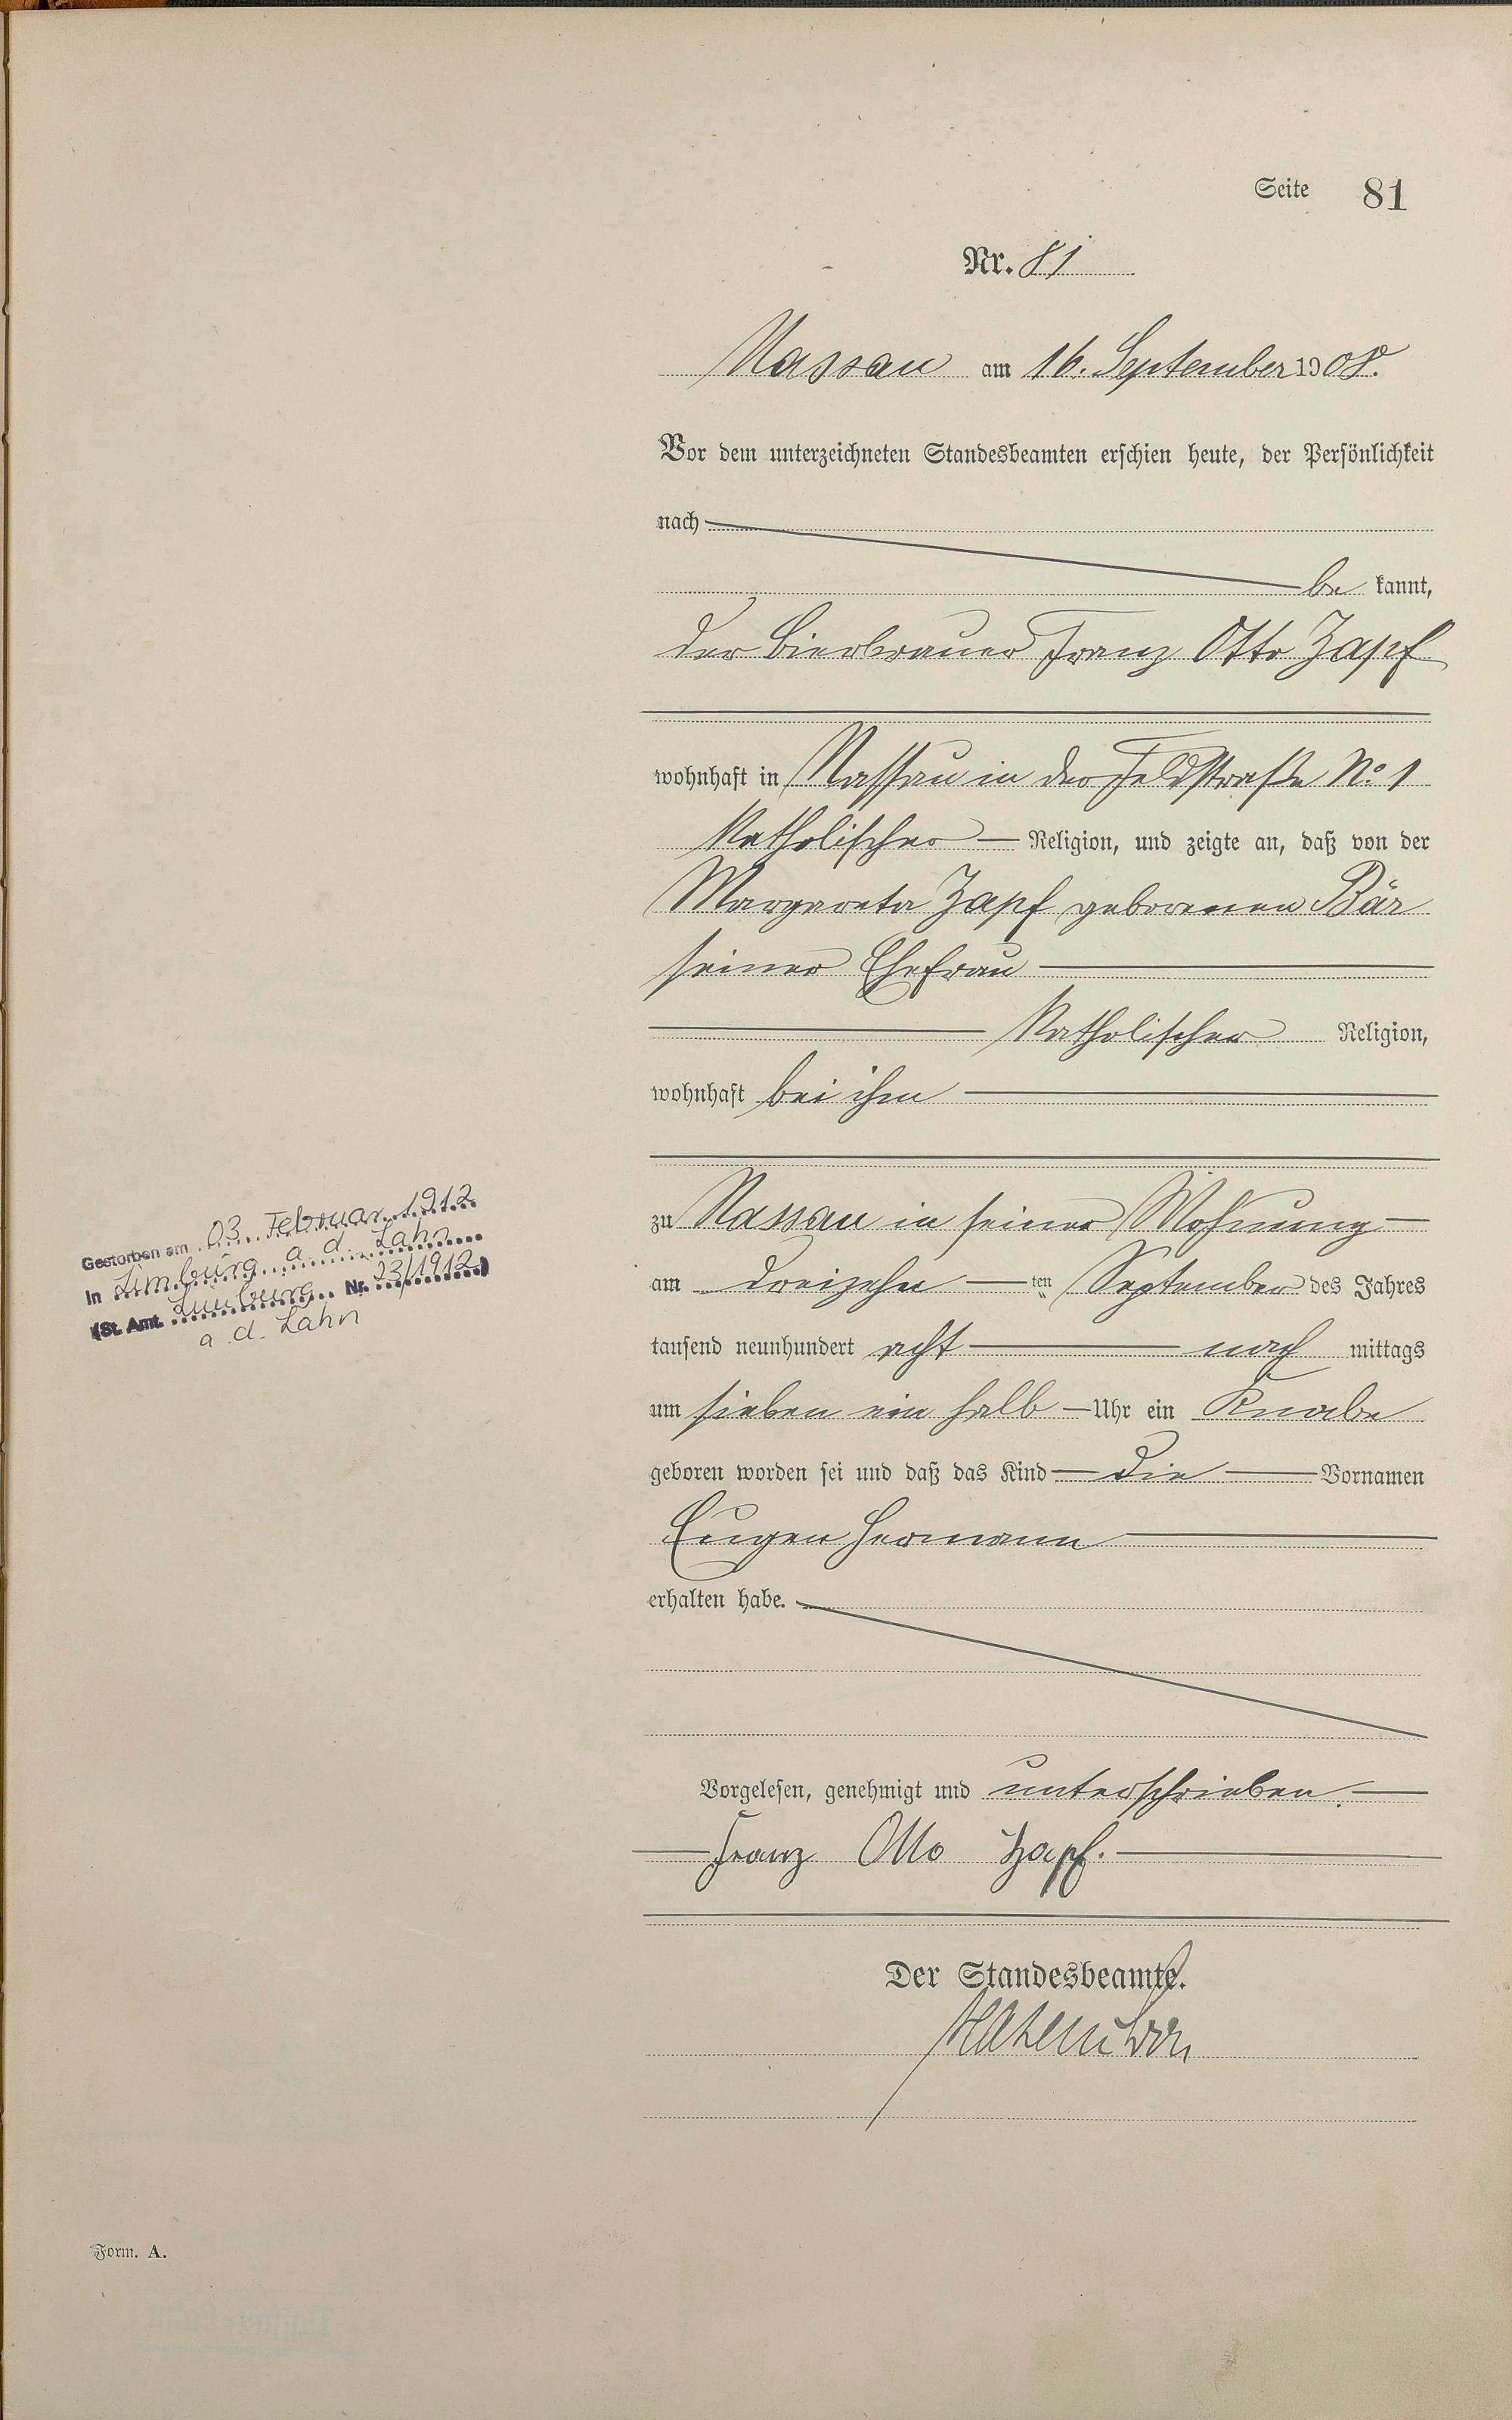 Seite 81
Nr. 81
Nassau am 16. September 1908.
Vor dem unterzeichneten Standesbeamten erschien heute, der Persönlichkeit
nach
be kannt,
der Bierbrauer Franz Otto Zapf
wohnhaft in Nassau in der Feldstraße No. 1
Katholischer Religion, und zeigte an, daß von der
Margareta Zapf geborenen Bär
seiner Ehefrau
Katholischer Religion,
wohnhaft bei ihm
zu Nassau in seiner Wohnung
am dreizehn ten September des Jahres
tausend neunhundert acht nach mittags
um sieben ein halb Uhr ein Knabe
geboren worden sei und daß das Kind die Vornamen
Eugen Hermann
erhalten habe.
Vorgelesen, genehmigt und unterschrieben.
Franz Otto Zapf.
Der Standesbeamte.
Gestorben am 03. Februar 1912
in Limburg a. d. Lahn
(St. Amt. Limburg Nr. 23/1912)
a. d. Lahn
Form. A.